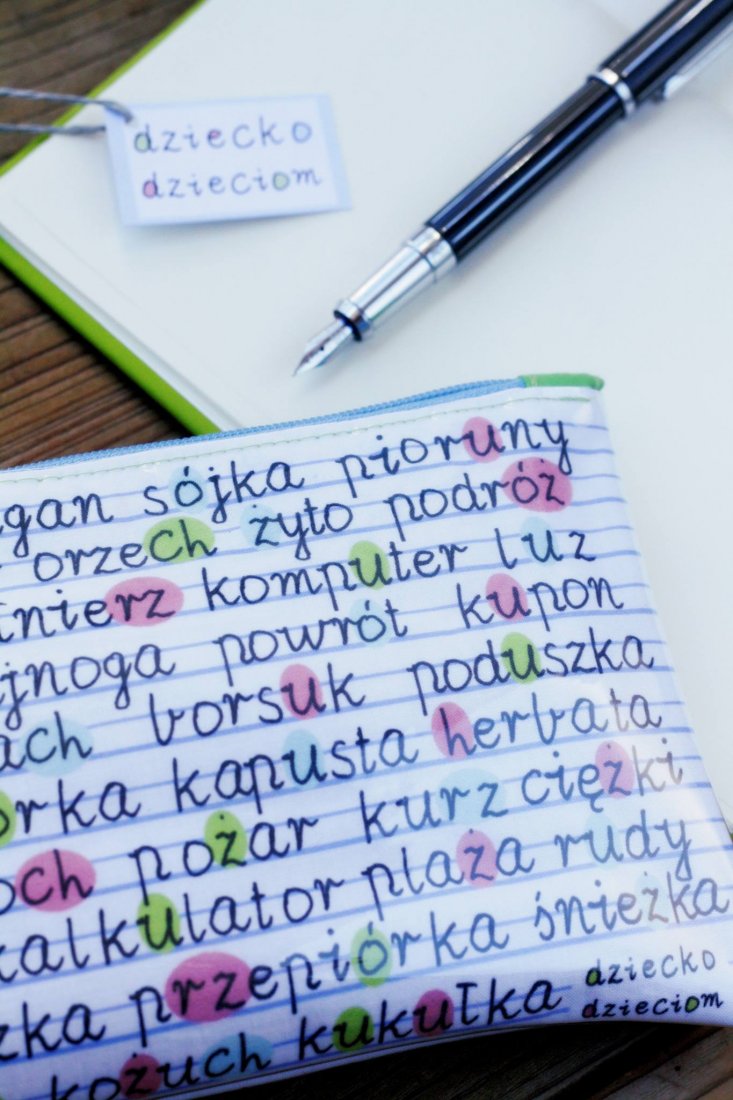 dziecko
dzieciom
sójka pioruny
orzech żyto podróż
komputer luz
powrót kupon
borsuk poduszka
kapusta herbata
pożar kurz ciężki
kalkulator plaża rudy
przepiórka śnieżka
kożuch kukułka
dziecko
dzieciom